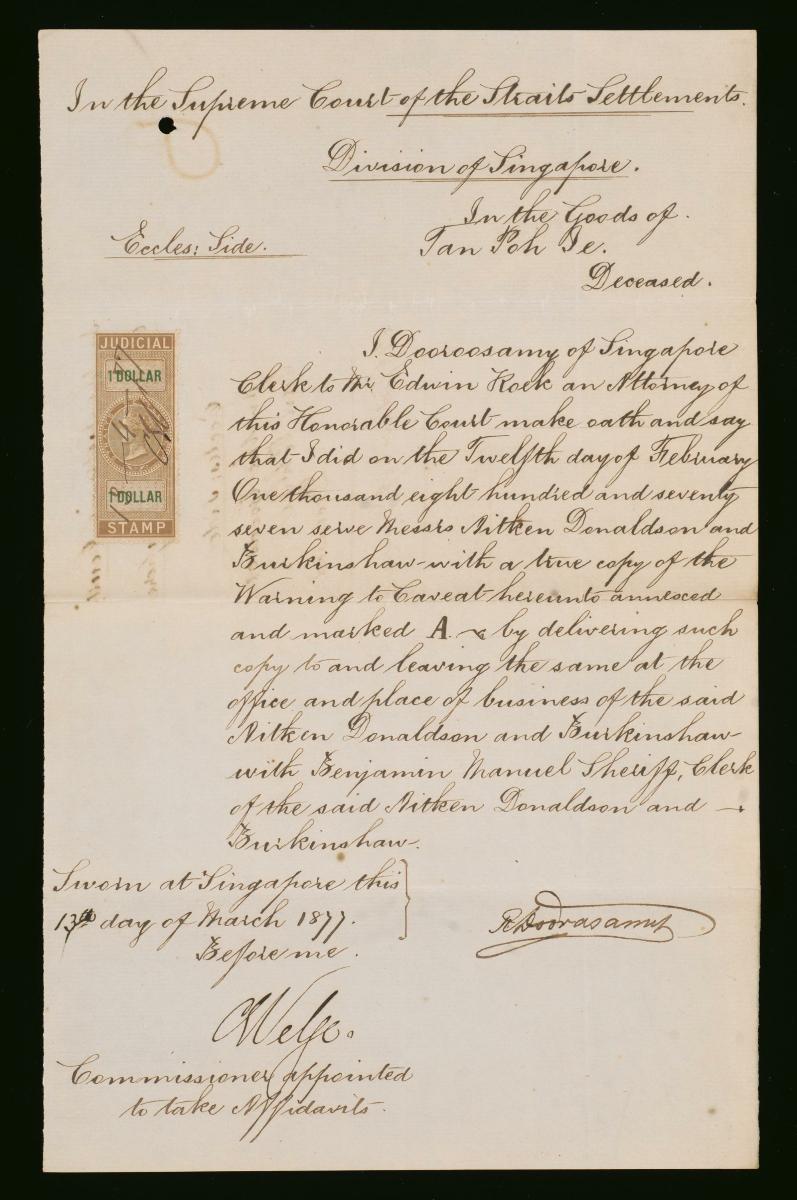 In the Supreme Court of the Straits Settlements.
Division of Singapore.
In the Goods of.
Eccles: Side.
Tan Poh Ie.
Deceased.
JUDICIAL
1 DOLLAR
1 DOLLAR
STAMP
I. Dooroosamy of Singapore
Clerk to Mr. Edwin Koek an Attorney of
this Honorable Court make oath and say
that I did on the Twelfth day of February
One thousand eight hundred and seventy
seven serve Messrs Aitken Donaldson and
Burkinshaw with a true copy of the
Warning to Caveat hereunto annexed
and marked A. by delivering such
copy to and leaving the same at the
office and place of business of the said
Aitken Donaldson and Burkinshaw
with Benjamin Manuel Sheriff, Clerk
of the said Aitken Donaldson and —
Burkinshaw.
Sworn at Singapore this
13th day of March 1877.
Before me.
R Doorasamy
Commissioner appointed
to take Affidavits.